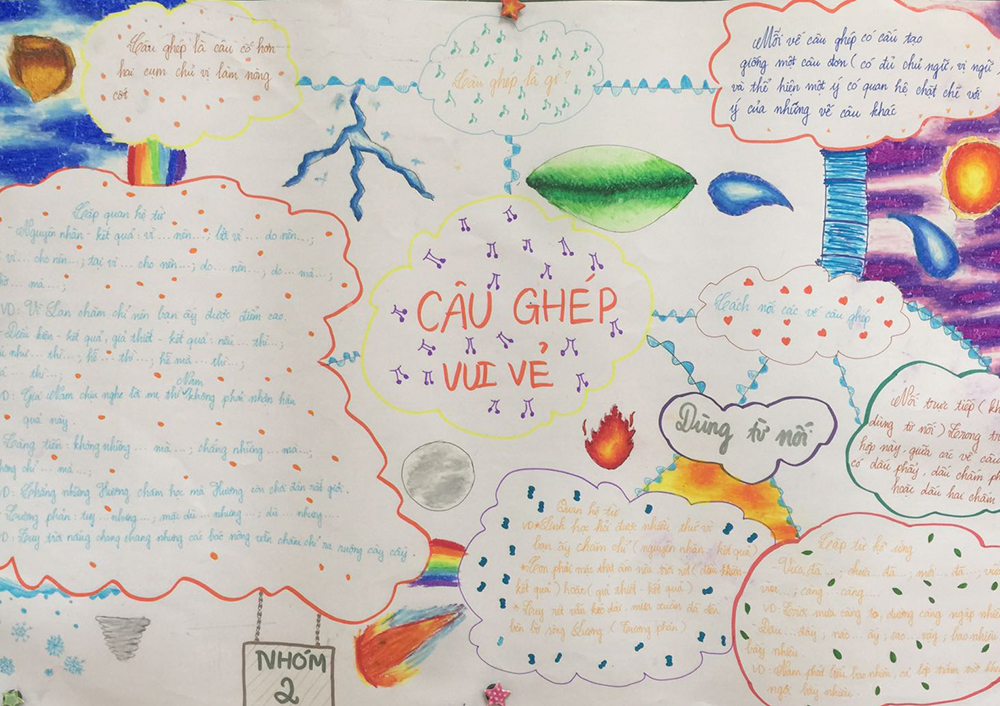 Câu ghép là câu có hơn
hai cụm chủ vị làm nòng
cốt
Câu ghép là gì?
Mỗi vế câu ghép có cấu tạo
giống một câu đơn (có đủ chủ ngữ, vị ngữ
và thể hiện một ý có quan hệ chặt chẽ với
ý của những vế câu khác
Cặp quan hệ từ
- Nguyên nhân - kết quả: vì... nên...; bởi vì... do nên...;
vì... cho nên...; tại vì... cho nên...; do... nên...; do... mà...;
mà...;
VD: Vì Lan chăm chỉ nên bạn ấy được điểm cao.
Điều kiện - kết quả, giả thiết - kết quả: nếu... thì...;
như... thì...; hễ... thì...; hễ mà... thì...;
thì...;
Nam
VD: Giá Nam chịu nghe lời mẹ thì không phải nhận hậu
quả này.
Tăng tiến: không những... mà...; chẳng những... mà...;
không chỉ... mà...;
VD: Chẳng những Hương chăm học mà Hương còn chơi đàn rất giỏi.
Tương phản: tuy... nhưng...; mặc dù... nhưng...; dù... nhưng...
VD: Tuy trời nắng chang chang nhưng các bác nông dân vẫn chăm chỉ ra ruộng cấy cày.
CÂU GHÉP
VUI VẺ
Cách nối các vế câu ghép
Dùng từ nối
Nối trực tiếp (k
dùng từ nối) Trong tr
hợp này, giữa các vế câu
có dấu phẩy, dấu chấm ph
hoặc dấu hai chấm
Quan hệ từ
VD: Linh học hỏi được nhiều thứ vì
bạn ấy chăm chỉ (nguyên nhân - kết quả)
kết quả) hoặc (giả thiết - kết quả)
+ Tuy rét vẫn kéo dài, mùa xuân đã đến
bên bờ sông Hương (Tương phản)
Cặp từ hô ứng
Vừa đã...; chưa đã...; mới... đã...;
vừa...; càng... càng...;
VD: Trời mưa càng to, đường càng ngập
Đâu... đấy; nào... ấy; sao... vậy; bao nhiêu
bấy nhiêu.
VD: Nam phát biểu bao nhiêu, cả lớp trầm trồ kh
ngợi bấy nhiêu.
NHÓM
2